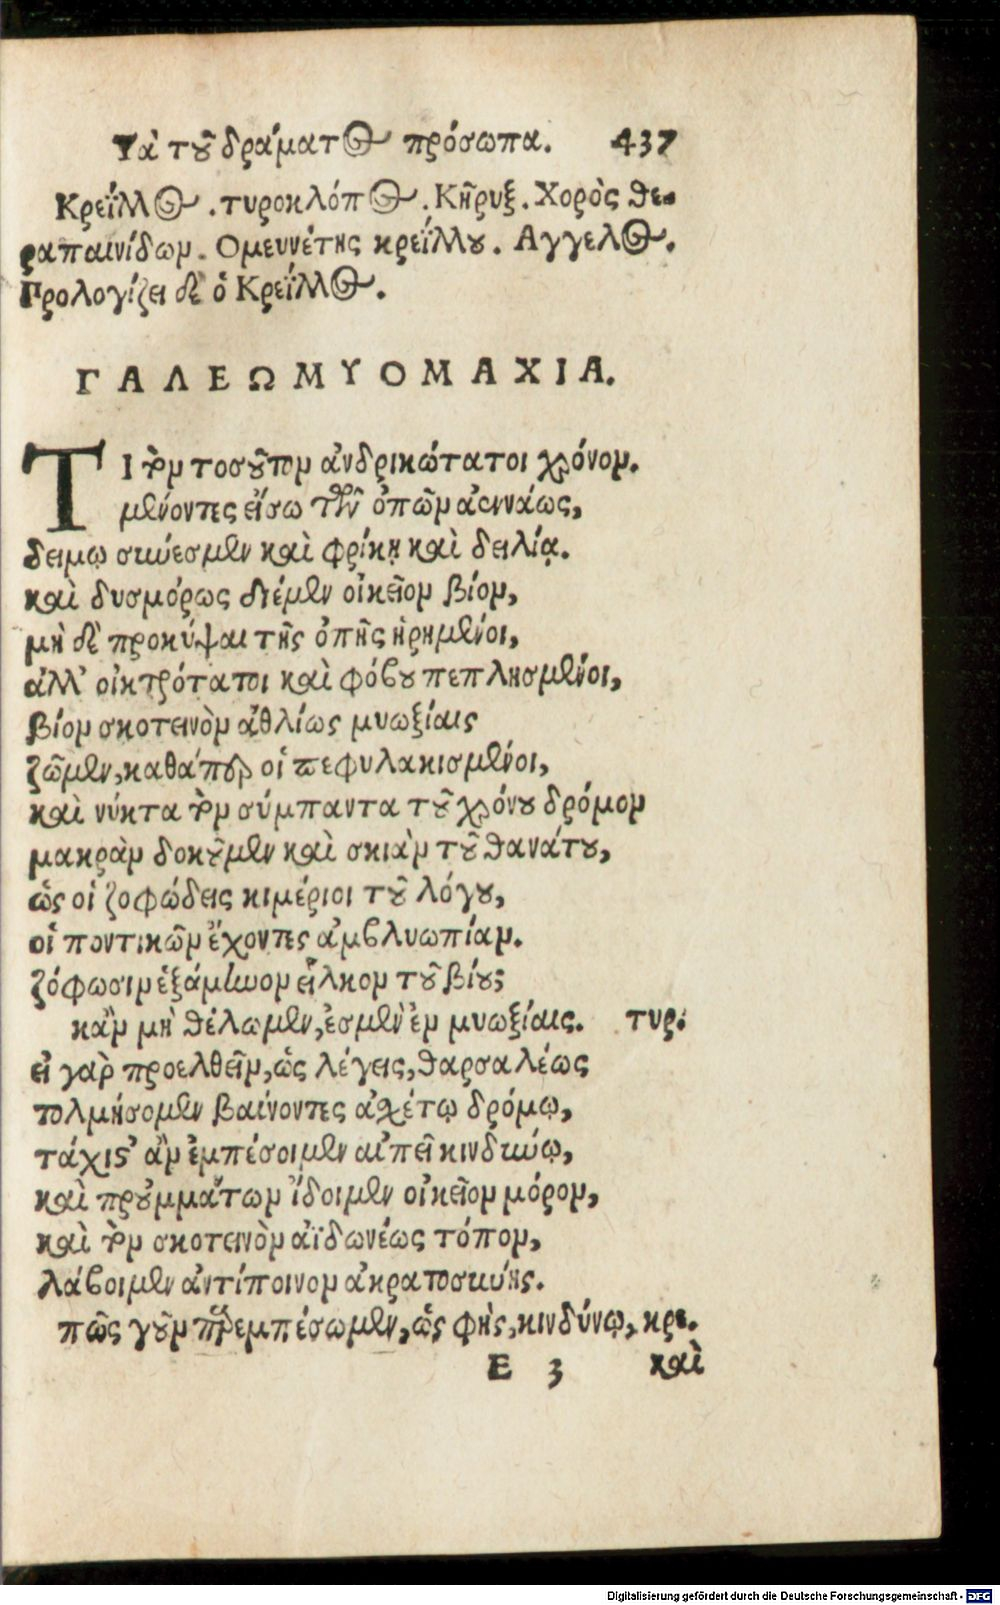 Τὰ τοῦ δράματος πρόσωπα. 437
Κρεΐλλος. τυροκλόπος. Κῆρυξ. Χορὸς θε-
ραπαινίδων. Ομευνέτης κρεΐλλου. Αγγελος.
Προλογίζει δὲ ὁ Κρεΐλλος.
ΓΑΛΕΩΜΥΟΜΑΧΙΑ.
ΤΙ τὸν τοσοῦτον ἀνδρικώτατοι χρόνον.
μένοντες εἴσω τῶν ὀπῶν ἀεννάως,
δειμῳ σιώεσμεν καὶ φρίκῃ καὶ δειλίᾳ.
καὶ δυσμόρως διέμεν οἰκεῖον βίον,
μὴ δὲ προκύψαι τῆς ὀπῆς ἠρημένοι,
ἀλλ' οἰκτρότατοι καὶ φόβου πεπλησμένοι,
βίον σκοτεινὸν ἀθλίως μυωξίαις
ζῶμεν, καθάπερ οἱ πεφυλακισμένοι,
καὶ νύκτα τὸν σύμπαντα τοῦ χρόνου δρόμον
μακρὰν δοκοῦμεν καὶ σκιὰν τοῦ θανάτου,
ὡς οἱ ζοφώδεις κιμέριοι τοῦ λόγου,
οἱ ποντικῶν ἔχοντες ἀμβλυωπίαν.
ζόφωσιν ἑξάμηνον εἷλκον τοῦ βίου;
κἂν μὴ θέλωμεν, ἐσμὲν ἐν μυωξίαις. τυρ.
εἰ γὰρ προελθεῖν, ὡς λέγεις, θαρσαλέως
τολμήσομεν βαίνοντες ἀχέτῳ δρόμῳ,
τάχιστ' ἂν ἐμπέσοιμεν αἰπεῖ κινδύνῳ,
καὶ προὐμμάτων ἴδοιμεν οἰκεῖον μόρον,
καὶ τὸν σκοτεινὸν ἀϊδωνέως τόπον,
λάβοιμεν ἀντίποινον ἀκρατοσκύης.
πῶς γοῦν παρεμπέσωμεν, ὡς φῂς, κινδύνῳ, κρε.
E 3 καὶ
Digitalisierung gefördert durch die Deutsche Forschungsgemeinschaft - DFG